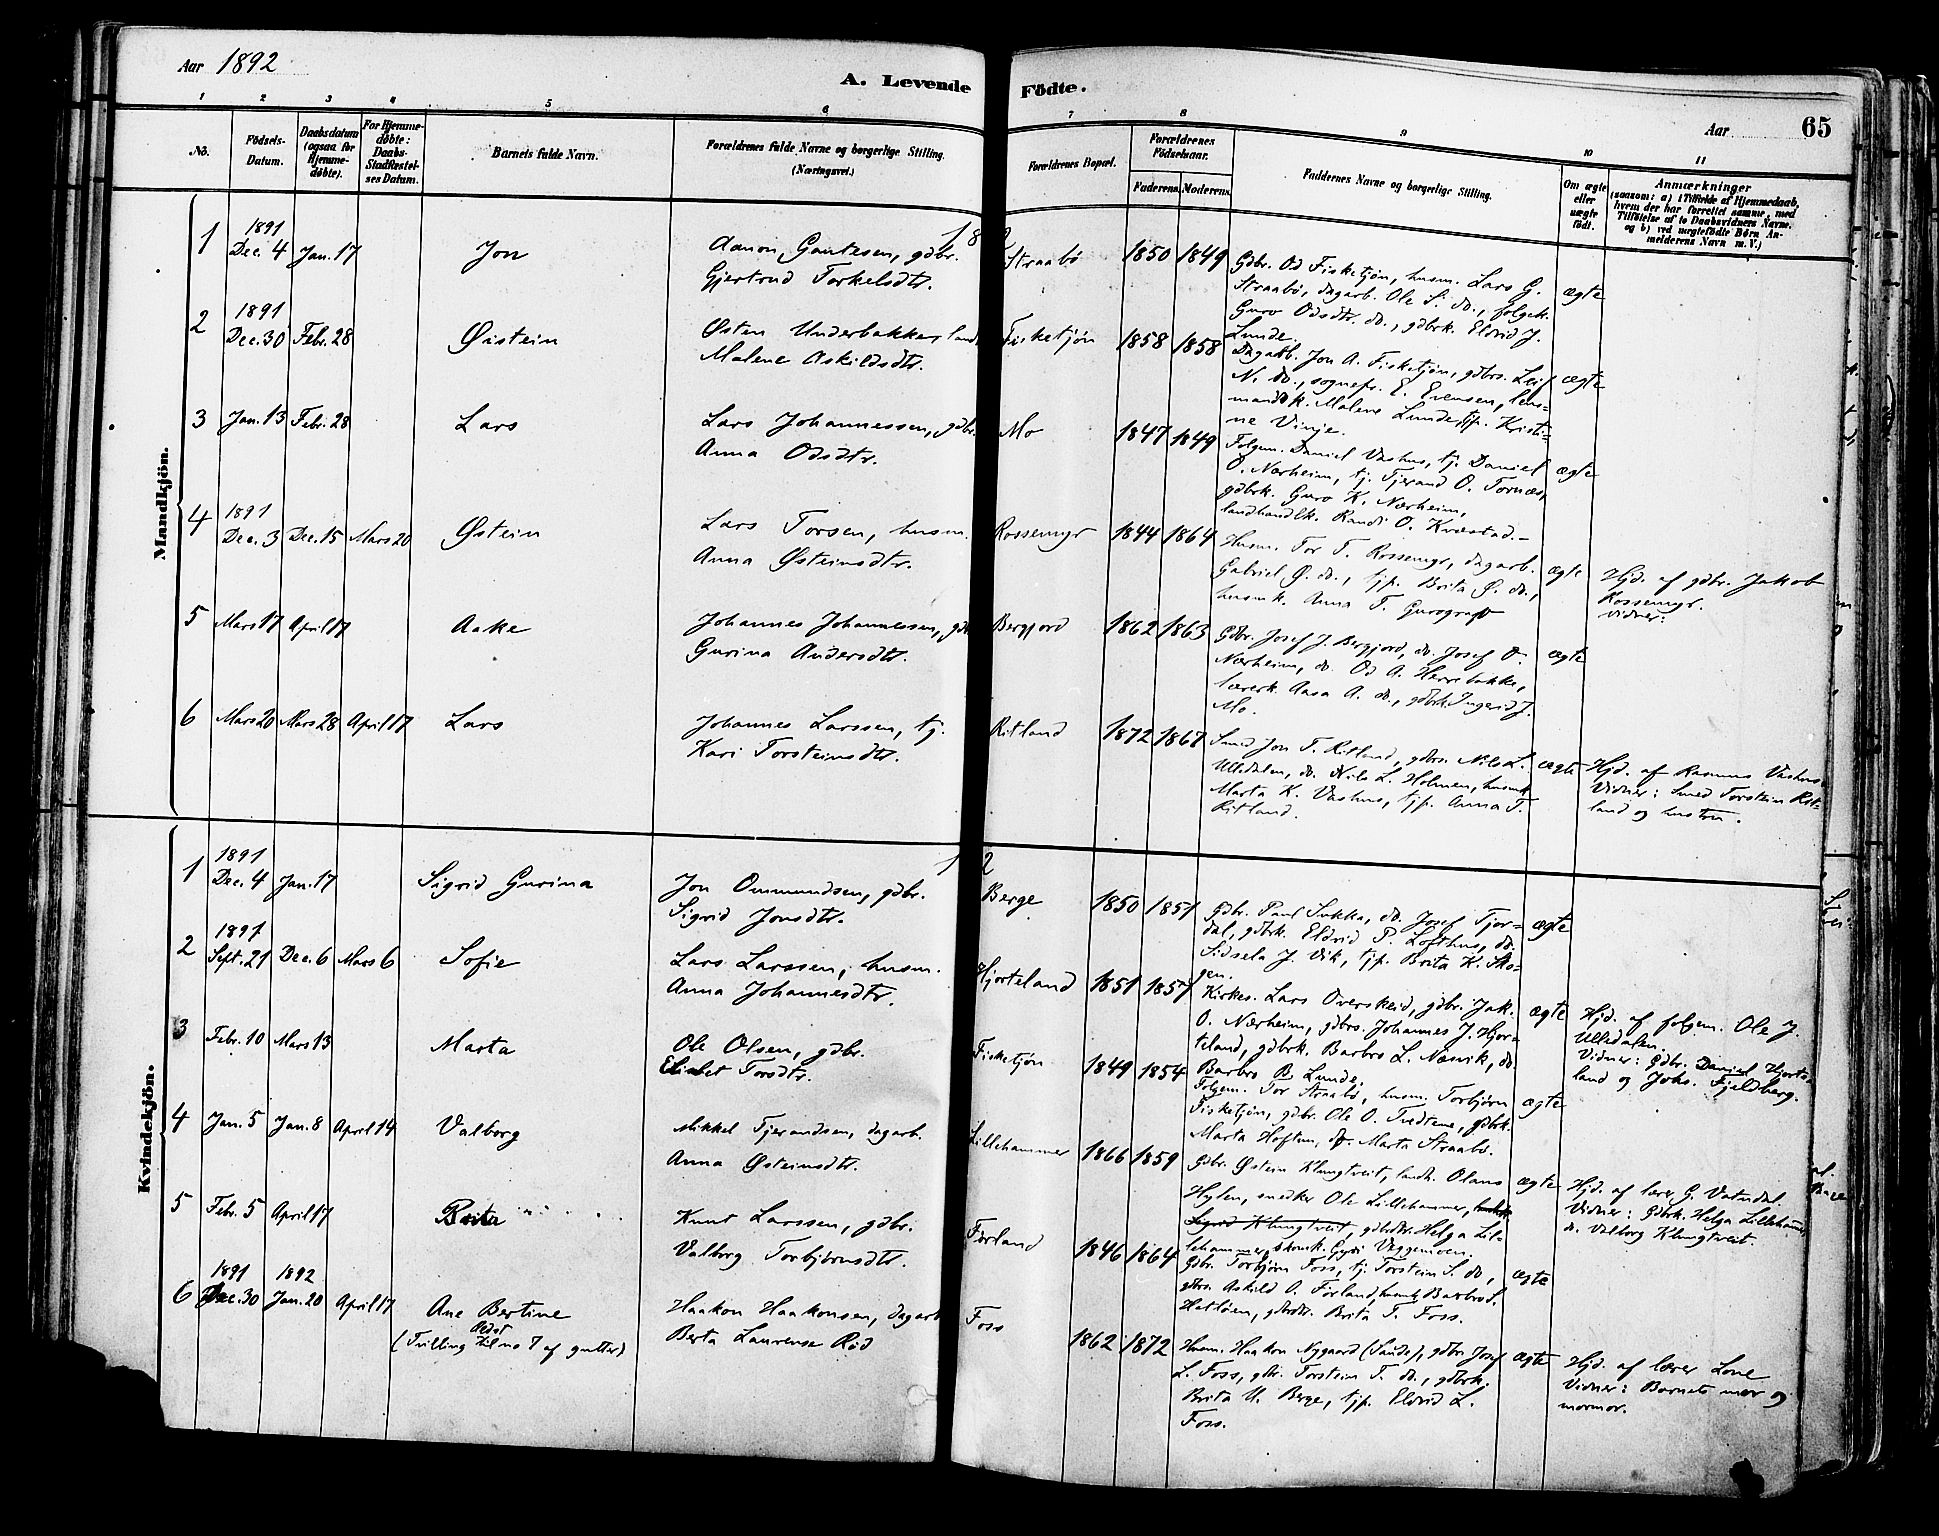 Aar 1892
A. Levende Fødte.
Aar
65
1 2 3 4 5 6 7 8 9 10 11
No.
Fødsels-Datum.
Daabsdatum (ogsaa for Hjemme-døbte).
For Hjemme-døbte: Daabs-Stadfæstel-ses Datum.
Barnets fulde Navn.
Forældrenes fulde Navne og borgerlige Stilling. (Næringsvei.)
Forældrenes Bopæl.
Forældrenes Fødselsaar.
Faderens. Moderens.
Faddernes Navne og borgerlige Stilling.
Om ægte eller uægte født.
Anmærkninger
(saasom: a) i Tilfælde af Hjemmedaab, hvem der har forrettet samme, med Tilføielse af to Daabsvidners Navne. og b) ved uægtefødte Børn An-melderens Navn m. V.)
Mandkjön.
1 1891 Dec. 4 Jan. 17 Jon
Aanon Gautesen, gdbr.
Gjertrud Torkelsdtr.
Straabø 1850 1849
Gdbr. Od Fisketjøn, husm. Lars G.
Straabø, dagarb. Ole S. do., folgek.
Guro Odsdtr. do., gdbrk. Eldrid J.
Lunde.
ægte
2 1891 Dec. 30 Febr. 28 Øistein
Østen Underbakke, land
Malene Askildsdtr.
Fisketjøn 1858 1858
Dagarb. Jon A. Fisketjøn, gdbrs. Leif
N. do., sognepr. E. Evensen, lens-
mandsk. Malene Lunde, tjp. Kristi-
ne Vinje.
ægte
3 Jan. 13 Febr. 28 Lars
Lars Johannessen, gdbr.
Anna Odsdtr.
Mo 1847 1849
Folgem. Daniel Vashus, tj. Daniel
O. Nærheim, tj. Tjerand O. Tornæs,
gdbrk. Guro K. Nærheim,
landhandlk. Randi O. Kvæstad.
ægte
4 1891 Dec. 3 Dec. 15 Mars 20 Østein
Lars Torsen, husm.
Anna Østeinsdtr.
Rossemyr 1844 1864
Husm. Tor T. Rossemyr, dagarb.
Gabriel Ø. do., tjp. Brita Ø. do.,
husmk. Anna T.
ægte
Hjd. af gdbr. Jakob
Rossemyr.
Vidner:
5 Mars 17 April 17 Aake
Johannes Johannessen, gdb
Gurina Andersdtr.
Bergjord 1862 1863
Gdbr. Josef J. Bergjord, do. Josef O.
Nærheim, do. Od A. Herrebakke,
lærerk. Aasa A. do., gdbrk. Ingerid J.
Mo.
ægte
6 Mars 20 Mars 28 April 17 Lars
Johannes Larssen, tj.
Kari Torsteinsdtr.
Ritland 1872 1867
Smed Jon T. Ritland, gdbrs. Nils L.
Ulledalen, do. Nils L. Holmen, husmk.
Marta K. Vashus, tjp. Anna T.
Ritland.
ægte
Hjd. af Rasmus Vashus.
Vidner: Smed Torstein Rit-
land og hustru.
Kvindekjön.
1 1891 Dec. 4 Jan. 17 Sigrid Gurina
Jon Ommundsen, gdbr.
Sigrid Jonsdtr.
Berge 1850 1851
Gdbr. Paul Sukka, do. Josef Tjor-
dal, gdbrk. Eldrid P. Lofthus, do.
Sidsela J. Vik, tjp. Brita K. Sko-
gen.
ægte
2 1891 Sept. 21 Dec. 6 Mars 6 Sofie
Lars Larssen, husm.
Anna Johannesdtr.
Hjorteland 1851 1857
Kirkes. Lars Overskeid, gdbr. Jak.
O. Nærheim, gdbrs. Johannes J. Hjor-
teland, gdbrk. Barbro L. Næsvik, do.
Barbro B. Lunde.
ægte
Hjd. af folgem. Ole J.
Ulledalen.
Vidner: Gdbr. Daniel Hjorte-
land og Johs. Fjeldberg.
3 Febr. 10 Mars 13 Marta
Ole Olsen, gdbr.
Elisabet Torsdtr.
Fisketjøn 1849 1854
Folgem. Tor Straabø, husm. Torbjørn
Fisketjøn, gdbr. Ole O. Tvedtene, gdbrk.
Marta Hoftun, tjp. Marta Straabø.
ægte
4 Jan. 5 Jan. 8 April 14 Valborg
Mikkel Tjerandsen, dagarb.
Anna Østeinsdtr.
Lillehammer 1866 1859
Gdbr. Østein Klungtveit, landh. Olaus
Hylen, snedker Ole Lillehammer,
Sigrid Klungtveit, gdbdtr. Helga Lil-
lehammer, Veggemoen.
ægte
Hjd. af lærer G. Vatndal.
Vidner: Gdbrk. Helga Lillehammer,
do. Valborg Klungtveit.
5 Febr. 5 April 17 Brita
Knut Larssen, gdbr.
Valborg Torbjørnsdtr.
Førland 1846 1864
Gdbr. Torbjørn Foss, tj. Torstein S. do.,
gdbrs. Askild O. Førland, husmk. Barbro S.
Hatløen, gdbrdtr. Brita T. Foss.
ægte
6 1891 Dec. 30 1892 Jan. 20 April 17 Ane Bertine
(Tvilling til no 7 af gutter)
Haakon Haakonsen, dagarb
Berta Laurense Rød
Foss 1862 1872
Husm. Haakon Nygaard (Sande), gdbr. Josef
L. Foss, gdbr. Torstein T. do., gdbrk.
Brita U. Berge, tjp. Eldrid L.
Foss.
ægte
Hjd. af lærer Lone
Vidner: Barnets mor og
mormor.